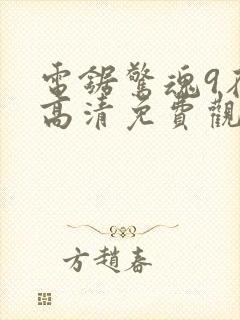 電鋸驚魂9在
高清免費觀
方趙春